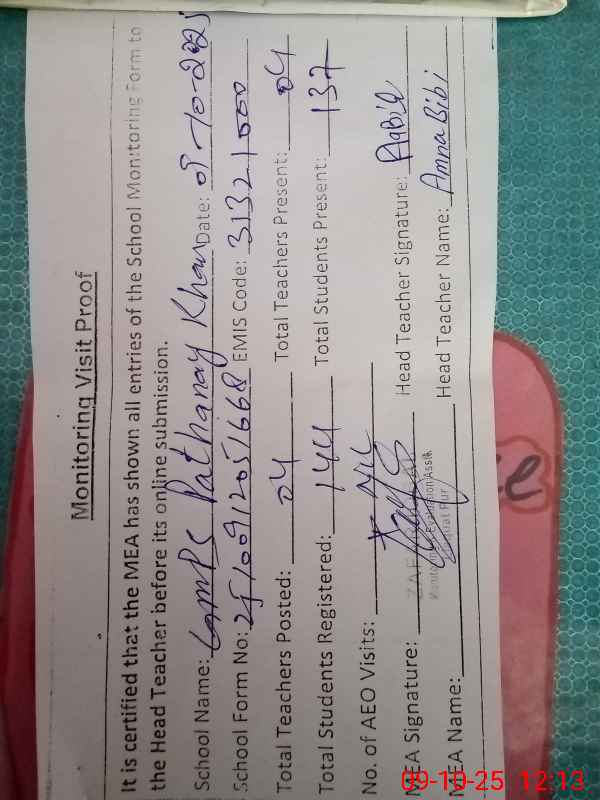 Monitoring Visit Proof
It is certified that the MEA has shown all entries of the School Monitoring Form to
the Head Teacher before its online submission.
School Name: GMPS Pathanay Khan Date: 09-10-2025
School Form No: 25100912051668 EMIS Code: 31321000
Total Teachers Posted: 04 Total Teachers Present: 04
Total Students Registered: 144 Total Students Present: 137
No. of AEO Visits:
MEA Signature: Head Teacher Signature:
MEA Name: Head Teacher Name: Amna Bibi
09-10-25 12:13